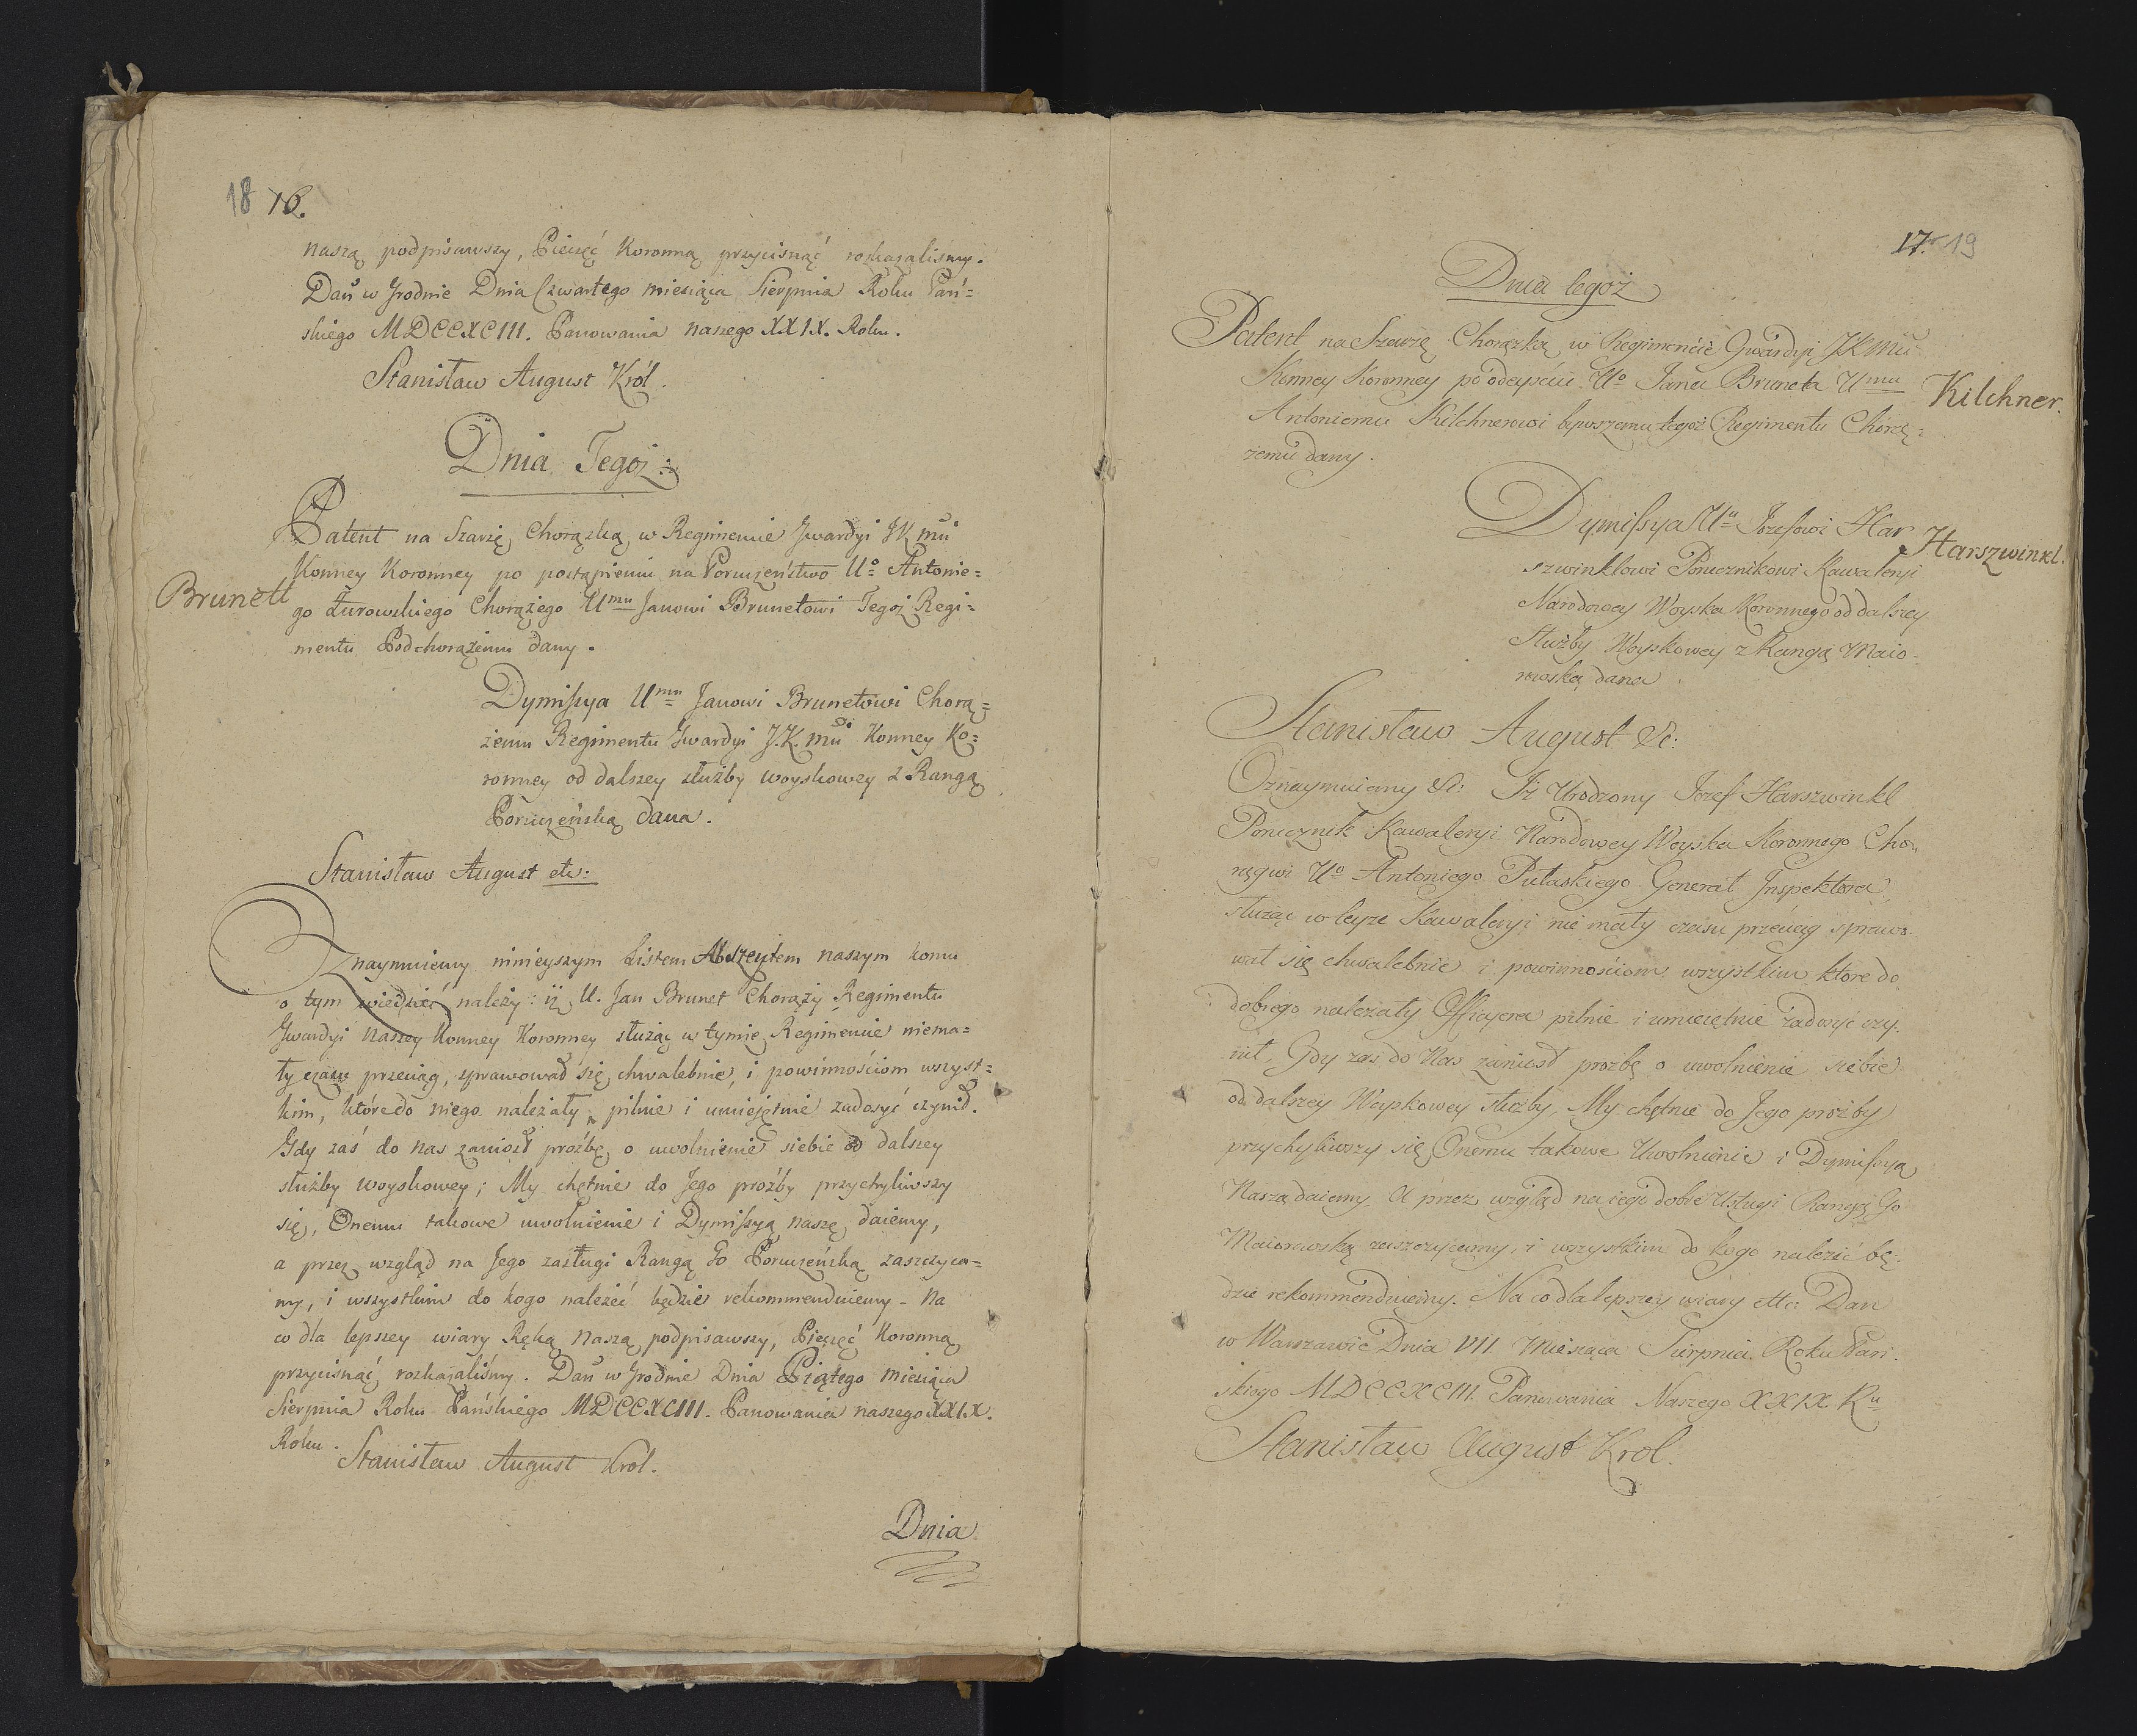 18 16.
naszą podpisawszy, Pieczęć Koronną przycisnąć rozkazaliśmy.
Dań w Grodnie Dnia Czwartego miesiąca Sierpnia Roku Pań=
skiego MDCCXCIII. Panowania naszego XXIX. Roku.
Stanisław August Król.
Dnia Tegoż:
Patent na Szarżę Chorążką w Regimencie Gwardyi JK mći
Konney Koronney po postąpieniu na Poruczeństwo Uo Antonie=
Brunett
go Żurowskiego Chorążego Umu Janowi Brunetowi Tegoż Regi=
mentu Podchorążemu dany.
Dymissya Umu Janowi Brunetowi Chorą=
żemu Regimentu Gwardyi J.K. mći Konney Ko=
ronney od dalszey służby woyskowey z Rangą
Poruczeńską dana.
Stanisław August etc:
Oznaymuiemy ninieyszym Listem Abszeytem naszym komu
o tym wiedzieć należy: iż U. Jan Brunet Chorąży Regimentu
Gwardyi Naszey Konney Koronney służąc w tymże Regimencie niema=
ły czasu przeciąg, sprawował się chwalebnie, i powinnościom wszyst=
kim, które do niego należały, pilnie i umiejętnie zadosyć czynił.
Gdy zaś do nas zaniosł prośbę o uwolnienie siebie od dalszey
służby woyskowey; My chętnie do Jego proźby przychyliwszy
się, Onemu takowe uwolnienie i Dymissyą naszę daiemy,
a przez wzgląd na Jego zasługi Rangą Go Poruczeńską zaszczyca=
my, i wszystkim do kogo należeć będzie rekommenduiemy - Na
co dla lepszey wiary Ręką Naszą podpisawszy, Pieczęć Koronną
przycisnąć rozkazaliśmy. Dań w Grodnie Dnia Piątego Miesiąca
Sierpnia Roku Pańskiego MDCCXCIII. Panowania naszego XXIX.
Roku.
Stanisław August Król.
Dnia
17. 19
Dnia tegoż
Patent na Szarżę Chorążką w Regimencie Gwardyi JK mći
Konney Koronney po odeyściu Uo Jana Bruneta Umu
Kilchner.
Antoniemu Kilchnerowi lepszemu tegoż Regimentu Chorą=
żemu dany.
Dymissya Uu Jozefowi Har
Harszwinkl.
szwinklowi Porucznikowi Kawaleryi
Narodowey Woyska Koronnego od dalszey
służby Woyskowey z Rangą Maio-
rowską dana
Stanisław August &c:
Oznaymuiemy &c: Iż Urodzony Jozef Harszwinkl
Porucznik Kawaleryi Narodowey Woyska Koronnego Cho-
rągwi Uo Antoniego Pułaskiego General Inspektora,
służąc w teyże Kawaleryi nie mały czasu przeciąg sprawo-
wał się chwalebnie i powinnościom wszystkim ktore do
dobrego należały Officyera pilnie i umieiętnie zadosyć czy-
nił, Gdy zaś do Nas zaniosł prozbę o uwolnienie siebie
od dalszey Woyskowey służby, My chętnie do Jego prożby
przychyliwszy się, Onemu takowe Uwolnienie i Dymissyą
Naszą daiemy, A przez wzgląd na iego dobre Usługi Rangą Go
Maiorowską zaszczycamy, i wszystkim do kogo należeć bę-
dzie rekommenduiemy. Na co dla lepszey wiary etc: Dan
w Warszawie Dnia VII Miesiąca Sierpnia Roku Pań-
skiego MDCCXCIII Panowania Naszego XXIX. Ru
Stanisław August Krol.